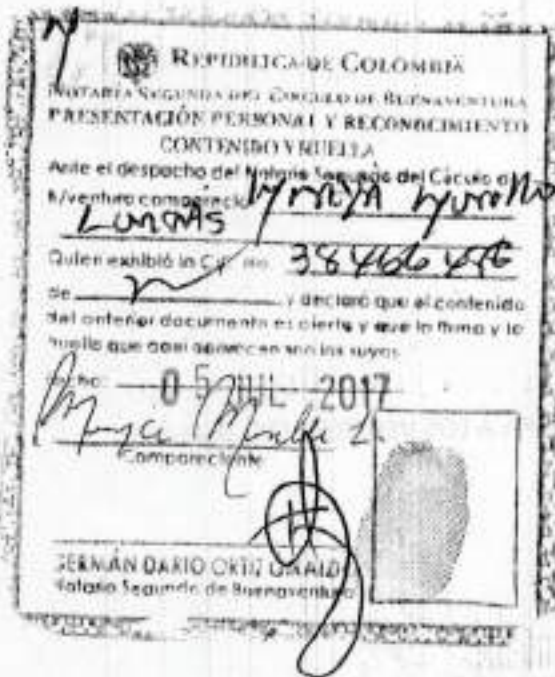 REPUBLICA DE COLOMBIA
NOTARIA SEGUNDA DEL CIRCULO DE BUENAVENTURA
PRESENTACIÓN PERSONAL Y RECONOCIMIENTO
CONTENIDO Y HUELLA
Ante el despacho del Notario Segundo del Circulo de
B/ventura compareció
Quien exhibió la C.C. no.
de y declaró que el contenido
del anterior documento es cierto y que la firma y la
huella que aqui aparecen son las suyas
Fecha: 05 JUL 2017
Compareciente
GERMÁN DARIO ORTIZ GIRALDO
Notario Segundo de Buenaventura